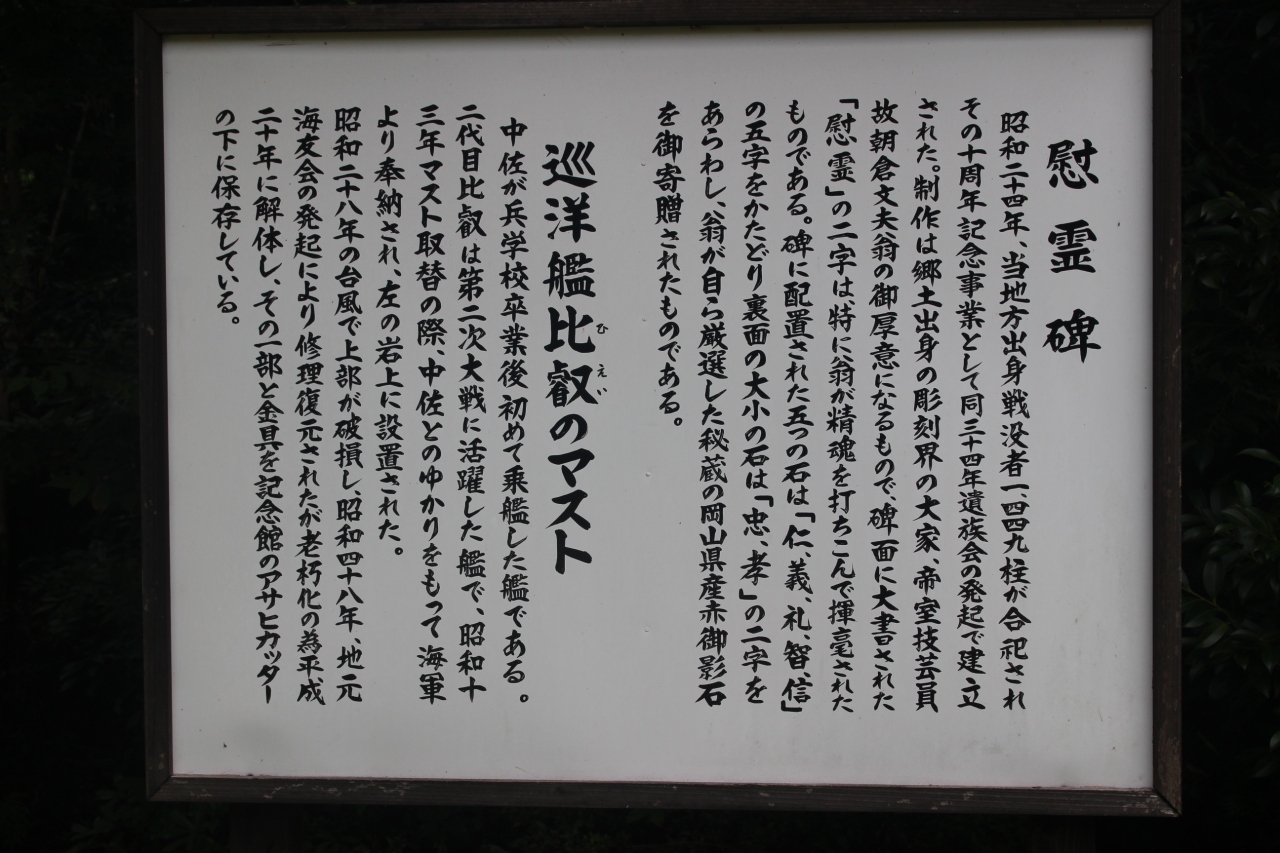 慰霊碑
昭和二十四年、当地方出身戦没者一、四四九柱が合祀され
その十周年記念事業として同三十四年遺族会の発起で建立
された。制作は郷土出身の彫刻界の大家、帝室技芸員
故朝倉文夫翁の御厚意になるもので、碑面に大書された
「慰霊」の二字は特に翁が精魂を打ちこんで揮毫された
ものである。碑に配置された五つの石は「仁、義、礼、智、信」
の五字をかたどり裏面の大小の石は「忠、孝」の二字を
あらわし、翁が自ら厳選した秘蔵の岡山県産赤御影石
を御寄贈されたものである。
巡洋艦比叡のマスト
ひえい
中佐が兵学校卒業後初めて乗艦した艦である。
二代目比叡は第二次大戦に活躍した艦で、昭和十
三年マスト取替の際、中佐とのゆかりをもって海軍
より奉納され、左の岩上に設置された。
昭和二十八年の台風で上部が破損し、昭和四十八年、地元
海友会の発起により修理復元されたが老朽化の為平成
二十年に解体し、その一部と金具を記念館のアサヒカッター
の下に保存している。